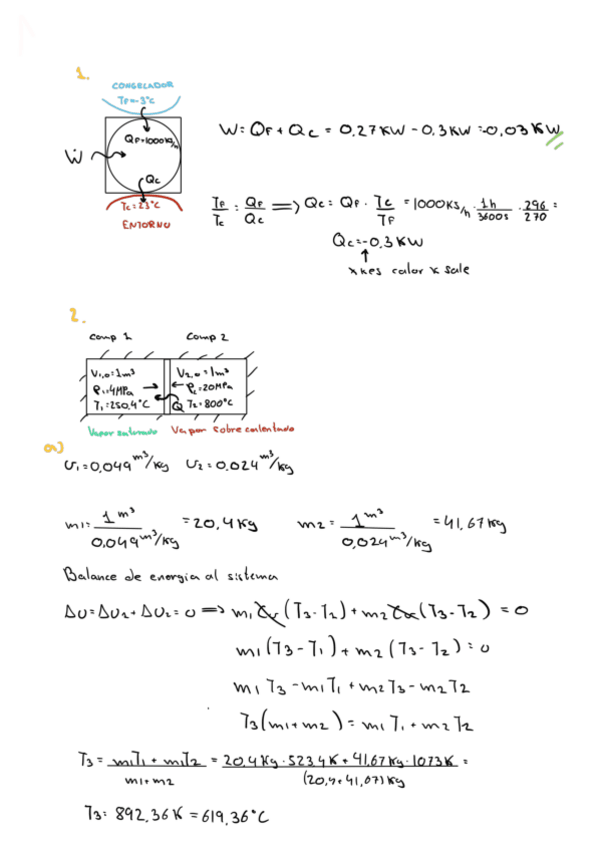 1.
CONGELADOR
TF=-3°C
QF=1000KJ/h
Ẇ
Qc
Tc=23°C
ENTORNO
W= QF + Qc = 0,27KW - 0,3KW = -0,03KW
TF/Tc = QF/Qc => Qc= QF · Tc/TF = 1000KJ/h · 1h/3600s · 296/270 =
Qc=-0,3KW
↑
xkes calor x sale
2.
Comp 1 Comp 2
V1,0=1m³ V2,0=1m³
P1=4MPa → ← P2=20MPa
T1=250,4°C Q T2=800°C
Vapor saturado Vapor sobrecalentado
a)
v1=0,049 m³/kg v2=0,024 m³/kg
m1= 1m³ / 0,049 m³/kg = 20,4Kg m2 = 1m³ / 0,024 m³/kg = 41,67Kg
Balance de energia al sistema
ΔU=ΔU1+ΔU2=0 => m1 Cv (T3-T1) + m2 Cv (T3-T2) = 0
m1 (T3-T1) + m2 (T3-T2) = 0
m1 T3 - m1T1 + m2T3 - m2T2
T3(m1+m2) = m1 T1 + m2T2
T3 = m1T1 + m1T2 / m1+m2 = 20,4Kg · 523,4K + 41,67Kg · 1073K / (20,4+41,67)Kg =
T3: 892,36K = 619,36°C